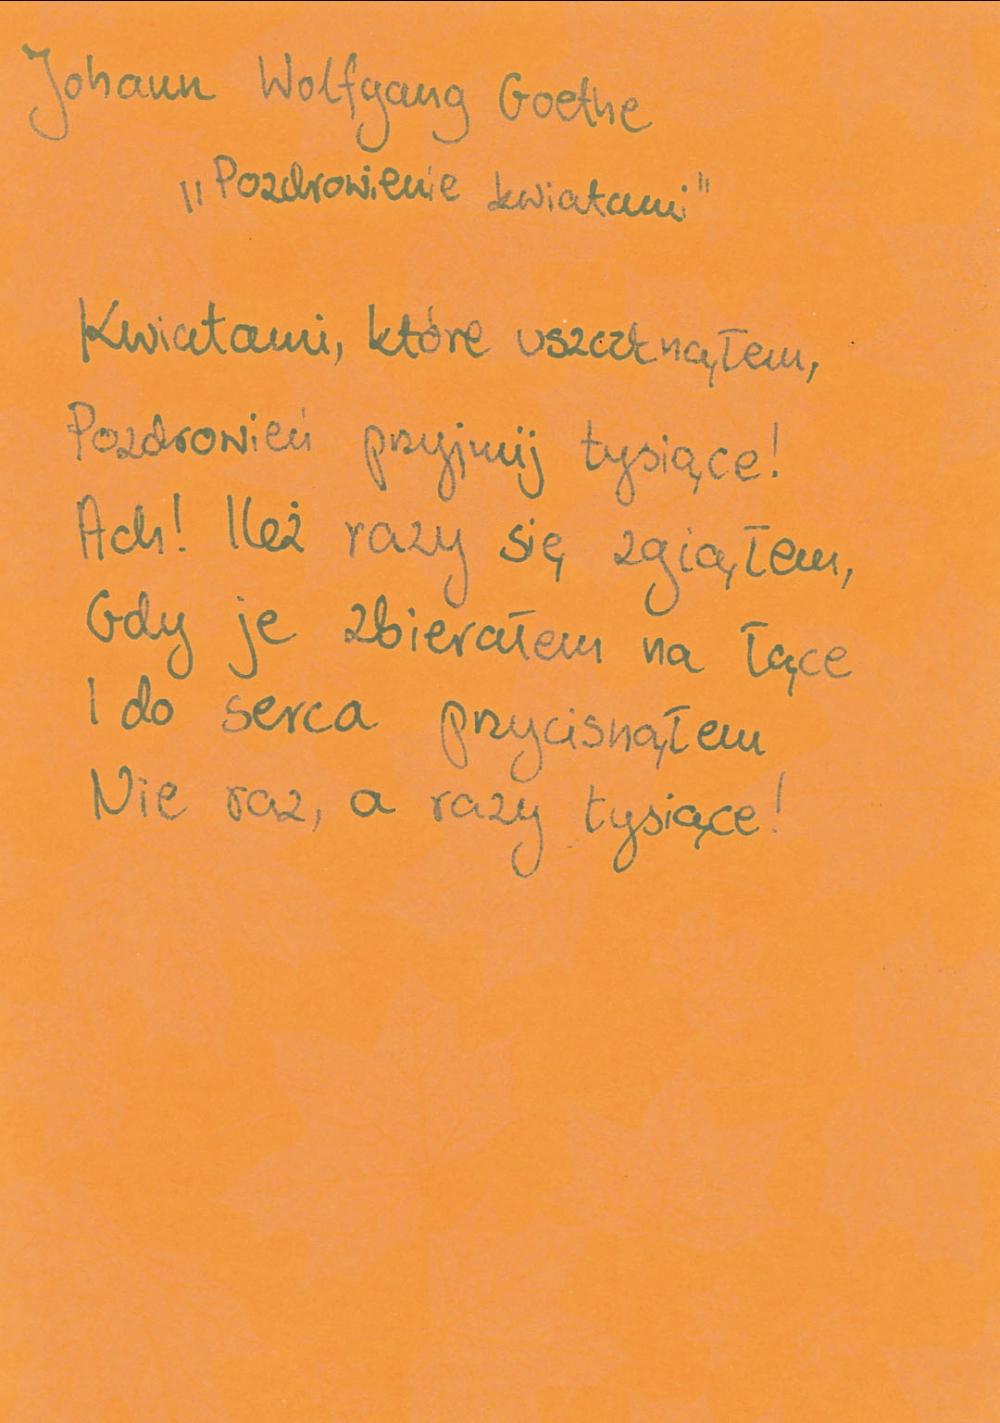 Johann Wolfgang Goethe
„Pozdrowienie kwiatami"
Kwiatami, które uszczknąłem,
Pozdrowień przyjmij tysiące!
Ach! Ileż razy się zgiąłem,
Gdy je zbierałem na łące
I do serca przycisnąłem
Nie raz, a razy tysiące!